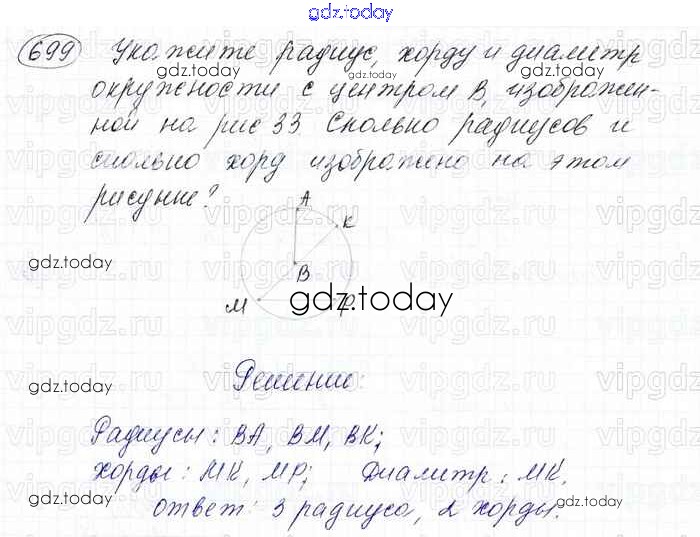 gdz.today
699 Укажите радиус, хорду и диаметр
окружности с центром В, изображен-
ной на рис 33 Сколько радиусов и
сколько хорд изображено на этом
рисунке?
A
K
B
M
P
gdz.today
Решение:
Радиусы: ВА, ВМ, ВК;
хорды: МК, МР; Диаметр: МК.
ответ: 3 радиуса, 2 хорды.
gdz.today
vipgdz.ru